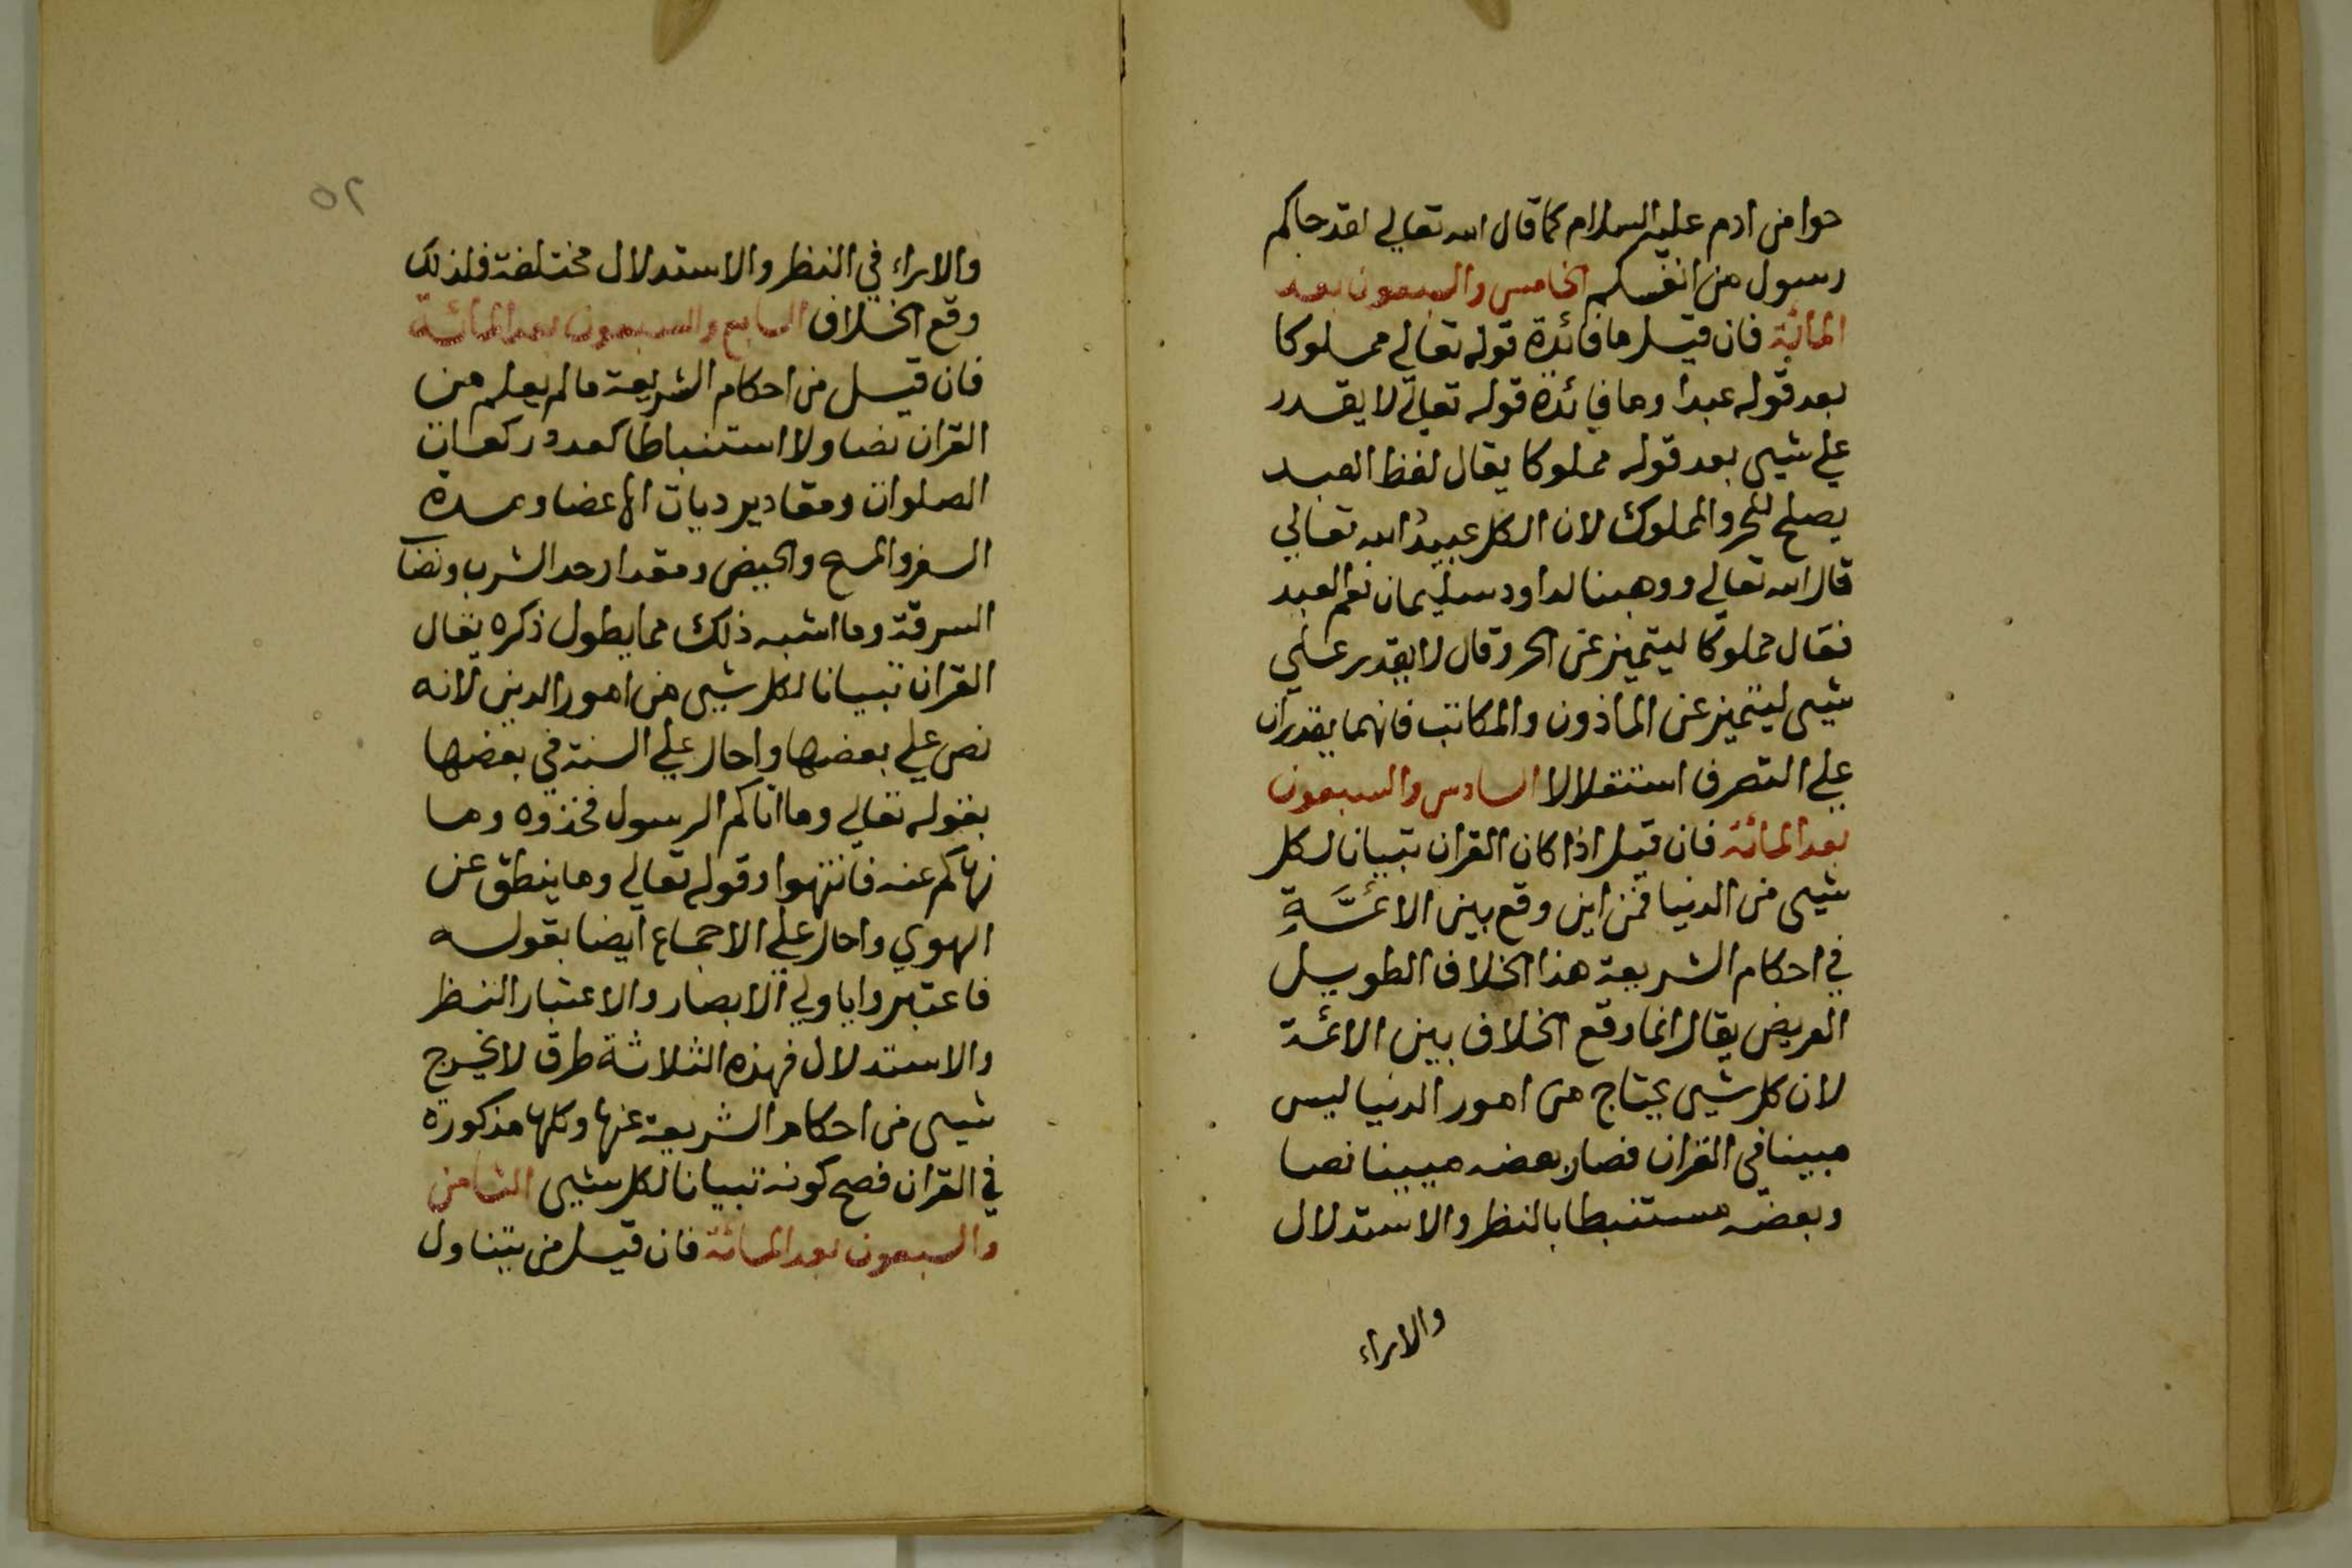 حوا من ادم عليه السلام كما قال الله تعالي لقد جاكم
رسول من انفسكم الخامس والسبعون بعد
المائة فان قيل ما فائدة قوله تعالي مملوكا
بعد قوله عبدا وما فائدة قوله تعالي لا يقدر
علي شيى بعد قوله مملوكا يقال لفظ العبد
يصلح للحر والمملوك لان الكل عبيد الله تعالي
قال الله تعالي ووهبنا لداود سليمان نعم العبد
فقال مملوكا ليتميز عن الحر وقال لا يقدر علي
شيى ليتميز عن الماذون والمكاتب فانهما يقدران
علي التصرف استقلالا السادس والسبعون
بعد المائة فان قيل اذا كان القران تبيانا لكل
شيى من الدنيا فمن اين وقع بين الائمَّةِ
في احكام الشريعة هذا الخلاف الطويل
العريض يقال انما وقع الخلاف بين الائمة
لان كل شيى يحتاج من امور الدنيا ليس
مبينا في القران فصار بعضه مبينا نصا
وبعضه مستنبطا بالنظر والاستدلال
والاراء
٥٢
والاراء في النظر والاستدلال مختلفة فلذلك
وقع الخلاف السابع والسبعون بعد المائة
فان قيل من احكام الشريعة مالم يعلم من
القران نصا ولا استنباطا كعدد ركعات
الصلوات ومقادير ديات الاعضا ومدة
السفر والمسح والحيض ومقدار حد الشرب ونصاب
السرقة وما اشبه ذلك مما يطول ذكره يقال
القران تبيانا لكل شيى من امور الدين لانه
نص علي بعضها واحال علي السنة في بعضها
بقوله تعالي وما اتاكم الرسول فخذوه وما
نهاكم عنه فانتهوا وقوله تعالي وما ينطق عن
الهوي واحال علي الاجماع ايضا بقوله
فاعتبروا ياولي الابصار والاعتبار النظر
والاستدلال فهذه الثلاثة طرق لا يخرج
شيى من احكام الشريعة عنها وكلها مذكورة
في القران فصح كونه تبيانا لكل شيى الثامن
والسبعون بعد المائة فان قيل من يتناول